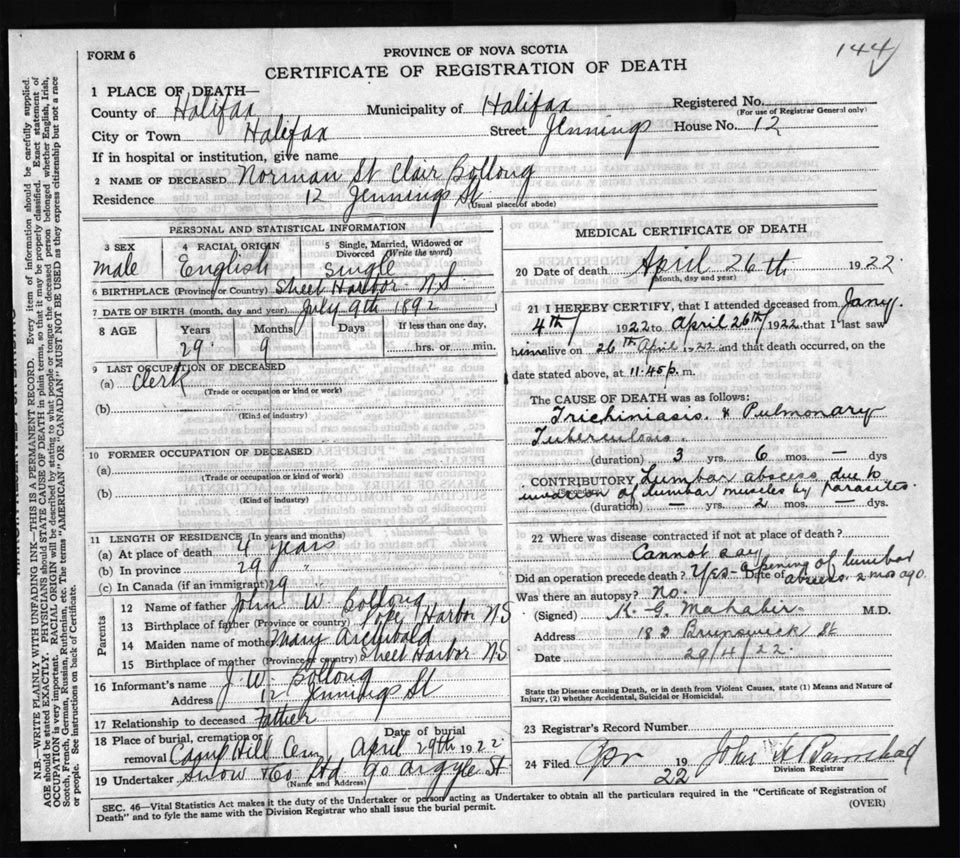 144
FORM 6
PROVINCE OF NOVA SCOTIA
CERTIFICATE OF REGISTRATION OF DEATH
1 PLACE OF DEATH—
County of Halifax Municipality of Halifax Registered No.
(For use of Registrar General only)
City or Town Halifax Street Jennings House No. 12
If in hospital or institution, give name
2 NAME OF DECEASED Norman St Clair Bollong
Residence 12 Jennings St
(Usual place of abode)
PERSONAL AND STATISTICAL INFORMATION
3 SEX 4 RACIAL ORIGIN 5 Single, Married, Widowed or Divorced (Write the word)
male English Single
6 BIRTHPLACE (Province or Country) Sheet Harbor N.S.
7 DATE OF BIRTH (month, day and year) July 9th 1892
8 AGE Years Months Days If less than one day,
29 9 hrs. or min.
9 LAST OCCUPATION OF DECEASED
(a) Clerk
(Trade or occupation or kind or work)
(b)
(Kind of industry)
10 FORMER OCCUPATION OF DECEASED
(a)
(Trade or occupation or kind or work)
(b)
(Kind of industry)
11 LENGTH OF RESIDENCE (In years and months)
(a) At place of death 4 years
(b) In province 29 "
(c) In Canada (if an immigrant) 29 "
Parents
12 Name of father John W. Bollong
13 Birthplace of father (Province or country) Pope Harbor NS
14 Maiden name of mother Mary Archibald
15 Birthplace of mother (Province or country) Sheet Harbor NS
16 Informant's name J. W. Bollong
Address 12 Jennings St
17 Relationship to deceased Father
18 Place of burial, cremation or removal Date of burial
Camp Hill Cem April 29th 1922
19 Undertaker Snow & Co Ltd 90 Argyle St
(Name and Address)
MEDICAL CERTIFICATE OF DEATH
20 Date of death April 26th 1922
(Month, day and year)
21 I HEREBY CERTIFY, that I attended deceased from Jany.
4th 1922 to April 26th 1922 that I last saw
him alive on 26th April 1922 and that death occurred, on the
date stated above, at 11.45 p. m.
The CAUSE OF DEATH was as follows:
Trichiniasis & Pulmonary
Tuberculosis.
(duration) 3 yrs. 6 mos. — dys
CONTRIBUTORY Lumbar abscess due to
invasion of lumbar muscles by parasites.
(duration) — yrs. 2 mos. — dys.
22 Where was disease contracted if not at place of death?
Cannot say
Did an operation precede death? Yes - opening of lumbar
Date of abscess. 2 mos ago.
Was there an autopsy? No.
(Signed) K. G. Mahabir M.D.
Address 183 Brunswick St
Date 29/4/22.
State the Disease causing Death, or in death from Violent Causes, state (1) Means and Nature of
Injury, (2) whether Accidental, Suicidal or Homicidal.
23 Registrar's Record Number
24 Filed Apr 1922 John
Division Registrar
SEC. 46—Vital Statistics Act makes it the duty of the Undertaker or person acting as Undertaker to obtain all the particulars required in the "Certificate of Registration of
Death" and to fyle the same with the Division Registrar who shall issue the burial permit. (OVER)
N.B.—WRITE PLAINLY WITH UNFADING INK—THIS IS A PERMANENT RECORD. Every item of information should be carefully supplied.
AGE should be stated EXACTLY. PHYSICIANS should STATE CAUSE OF DEATH in plain terms, so that it may be properly classified. Exact statement of
OCCUPATION is very important. RACIAL ORIGIN will be described by stating to what people or tongue the deceased person belonged whether English, Irish,
Scotch, French, German, Russian, Ruthenian, etc. The terms "AMERICAN" OR "CANADIAN" MUST NOT BE USED as they express citizenship but not a race
or people. See instructions on back of Certificate.